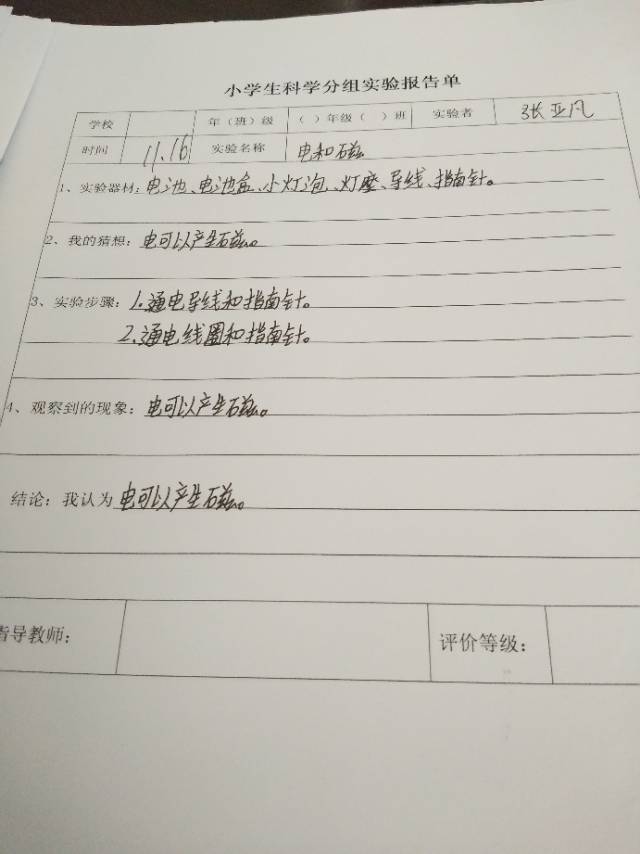 小学生科学分组实验报告单
学校 年（班）级 （ ）年级（ ）班 实验者 张亚凡
时间 11.16 实验名称 电和磁
1、实验器材：电池、电池盒、小灯泡、灯座、导线、指南针。
2、我的猜想：电可以产生磁。
3、实验步骤：1.通电导线和指南针。
2.通电线圈和指南针。
4、观察到的现象：电可以产生磁。
结论：我认为电可以产生磁。
指导教师： 评价等级：